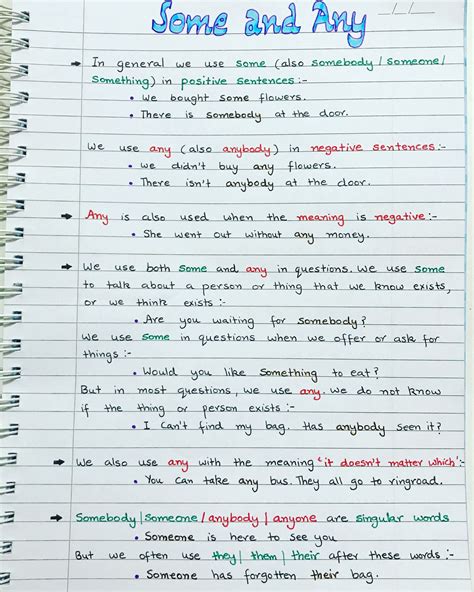 Some and Any
_/_/_
→ In general we use some (also somebody / someone/
something) in positive sentences:-
• We bought some flowers.
• There is somebody at the door.
We use any (also anybody) in negative sentences:-
• we didn't buy any flowers.
• There isn't anybody at the door.
→ Any is also used when the meaning is negative:-
• She went out without any money.
→ We use both some and any in questions. We use some
to talk about a person or thing that we know exists,
or we think exists:-
• Are you waiting for somebody?
We use some in questions when we offer or ask for
things:-
• Would you like something to eat?
But in most questions, we use any. We do not know
if the thing or person exists:-
• I can't find my bag. Has anybody seen it?
→ We also use any with the meaning 'it doesn't matter which':-
• You can take any bus. They all go to ringroad.
→ Somebody|someone/anybody|anyone are singular words
• Someone is here to see you
But we often use they| them | their after these words:-
• Someone has forgotten their bag.